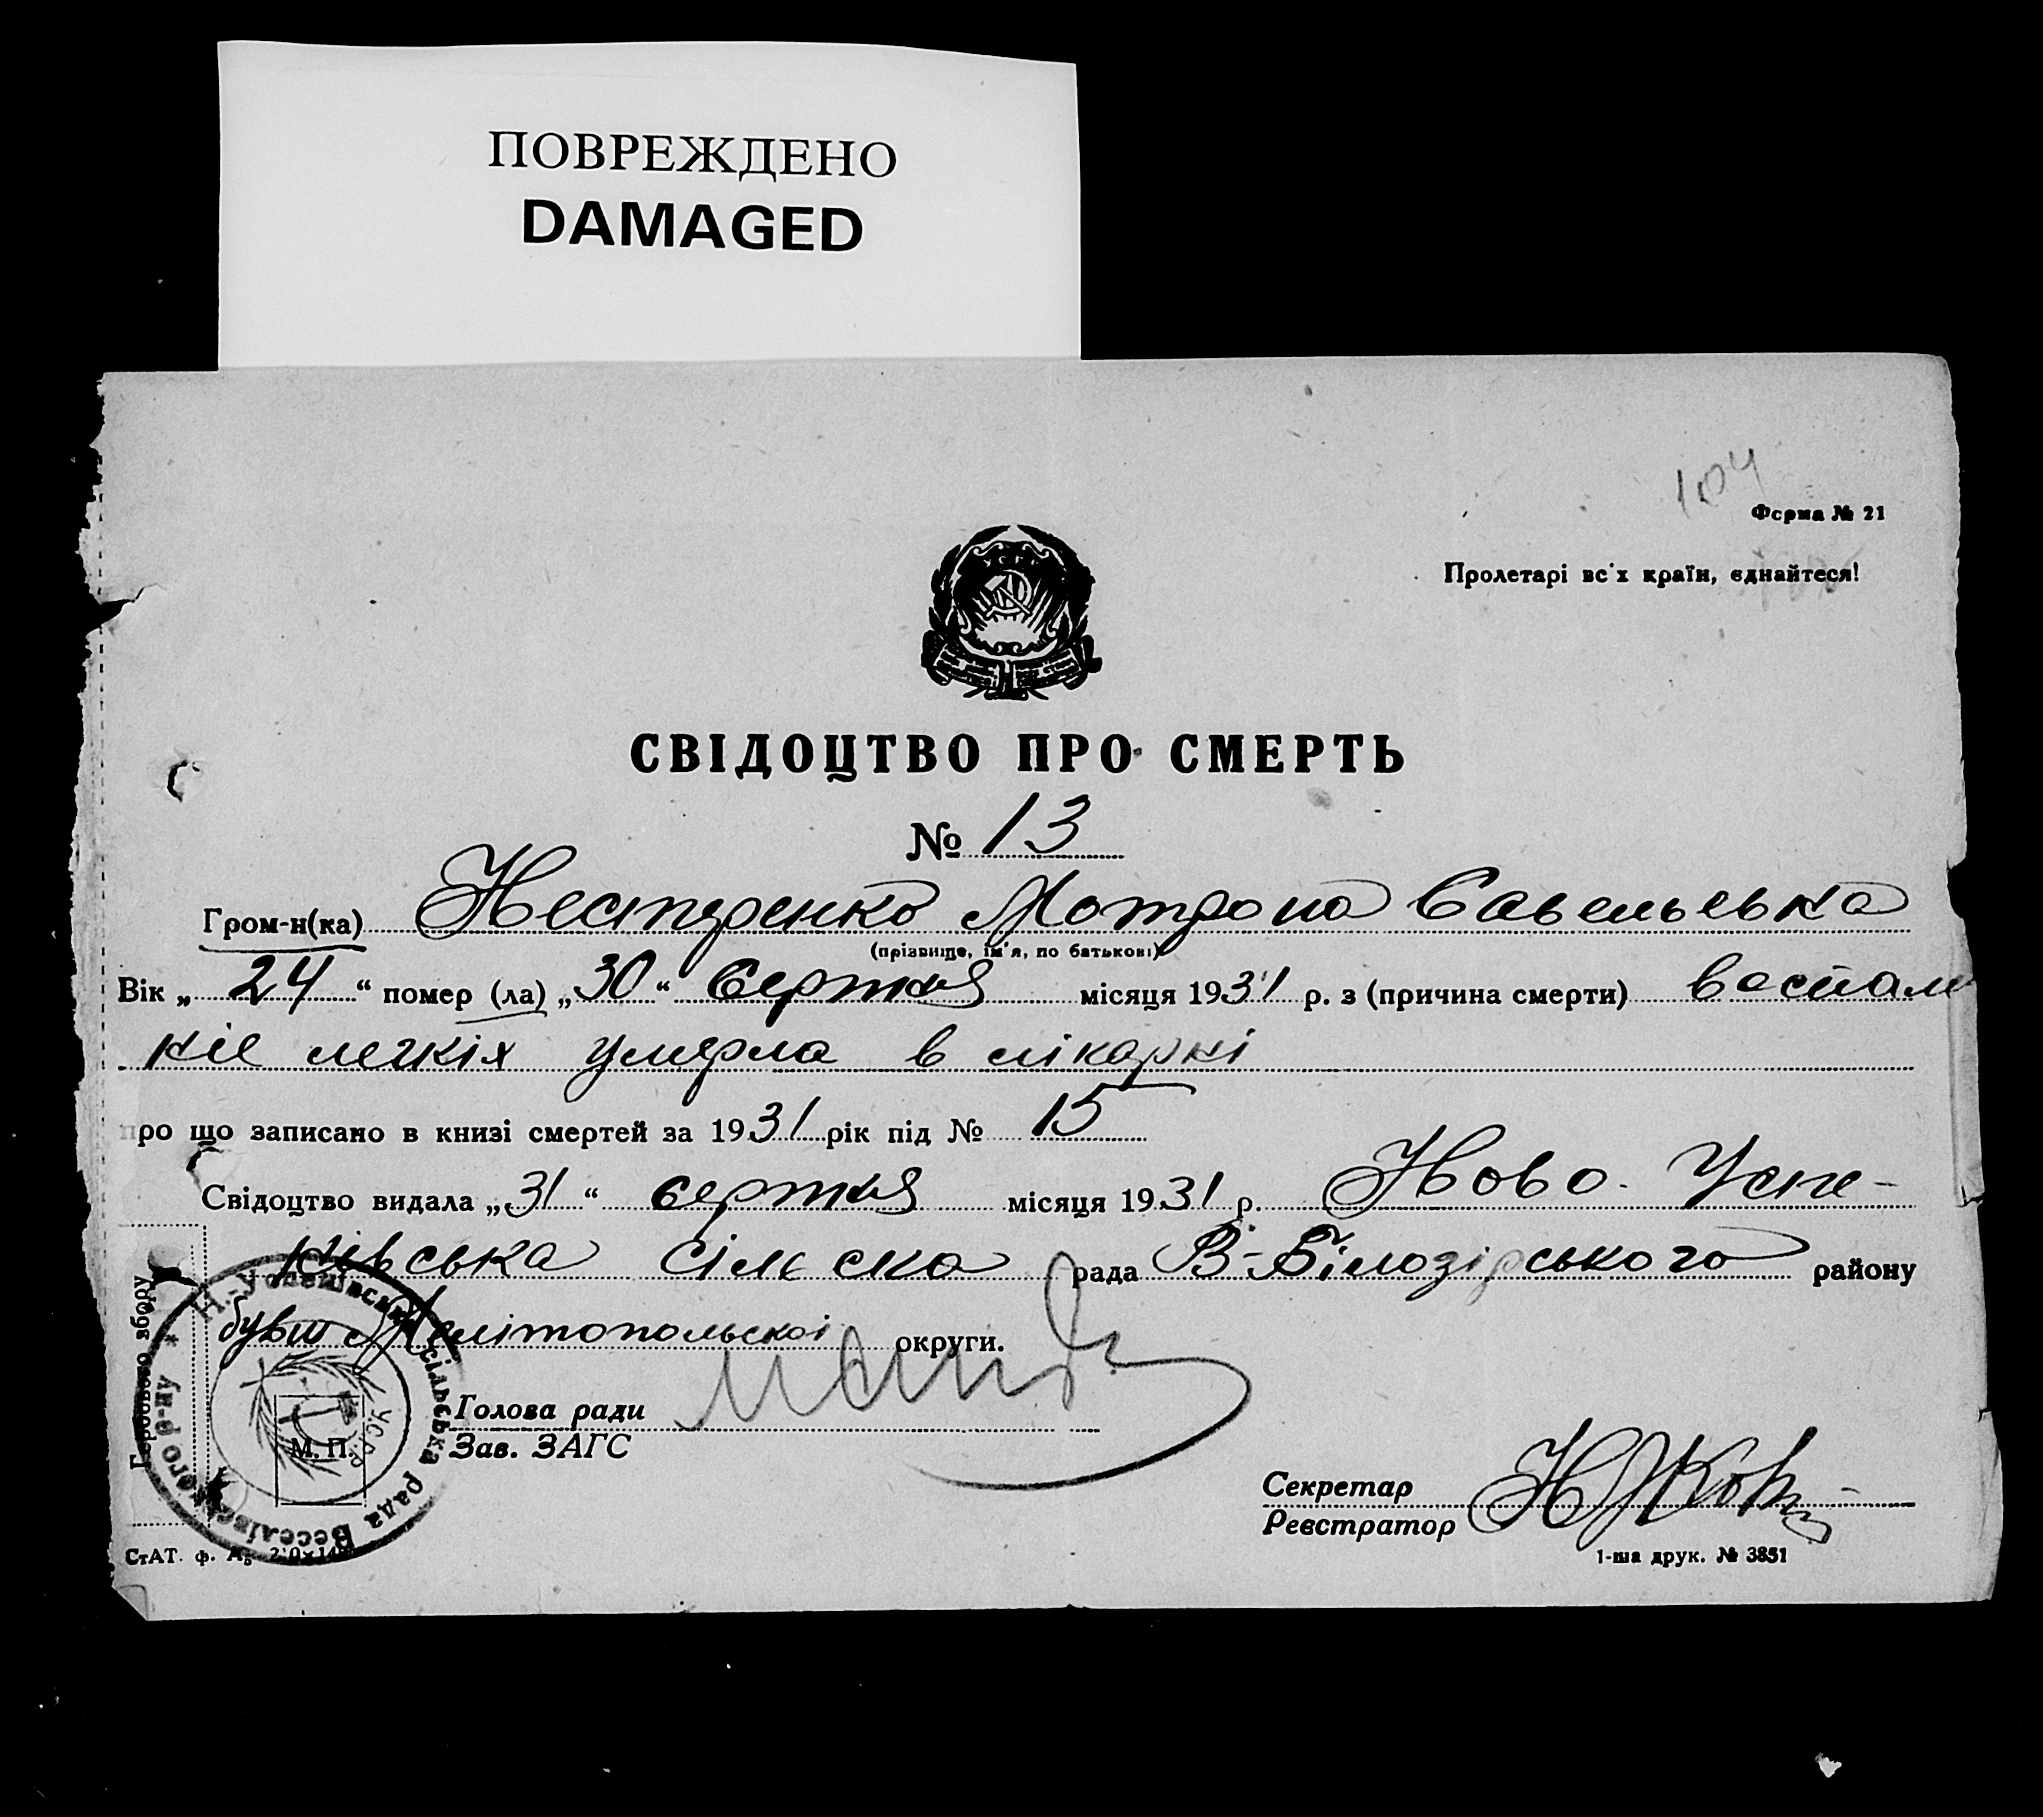 ПОВРЕЖДЕНО
DAMAGED
104
Форма № 21
Пролетарі всіх країн, єднайтеся!
СВІДОЦТВО ПРО СМЕРТЬ
№ 13
Гром-н(ка) Нестеренко Мотрона Савельевна
(прізвище, ім'я, по батькові)
Вік „ 24 “ помер (ла) „30“ Серпня місяця 1931 р. з (причина смерти) воспале
ніє легкіх умерла в лікарні
про що записано в книзі смертей за 1931 рік під № 15
Свідоцтво видала „31“ серпня місяця 1931 р. Ново-Успе-
нівська сільска рада В-Білозірського району
бувш Мелітопольскоі округи.
Гербового збору
Н.-Успенівська сільська рада Веселівського р-ну *
У.С.Р.Р.
М. П.
Голова ради
Зав. ЗАГС
Секретар
Реєстратор
СтАТ. ф. А5
1-ша друк. № 3851